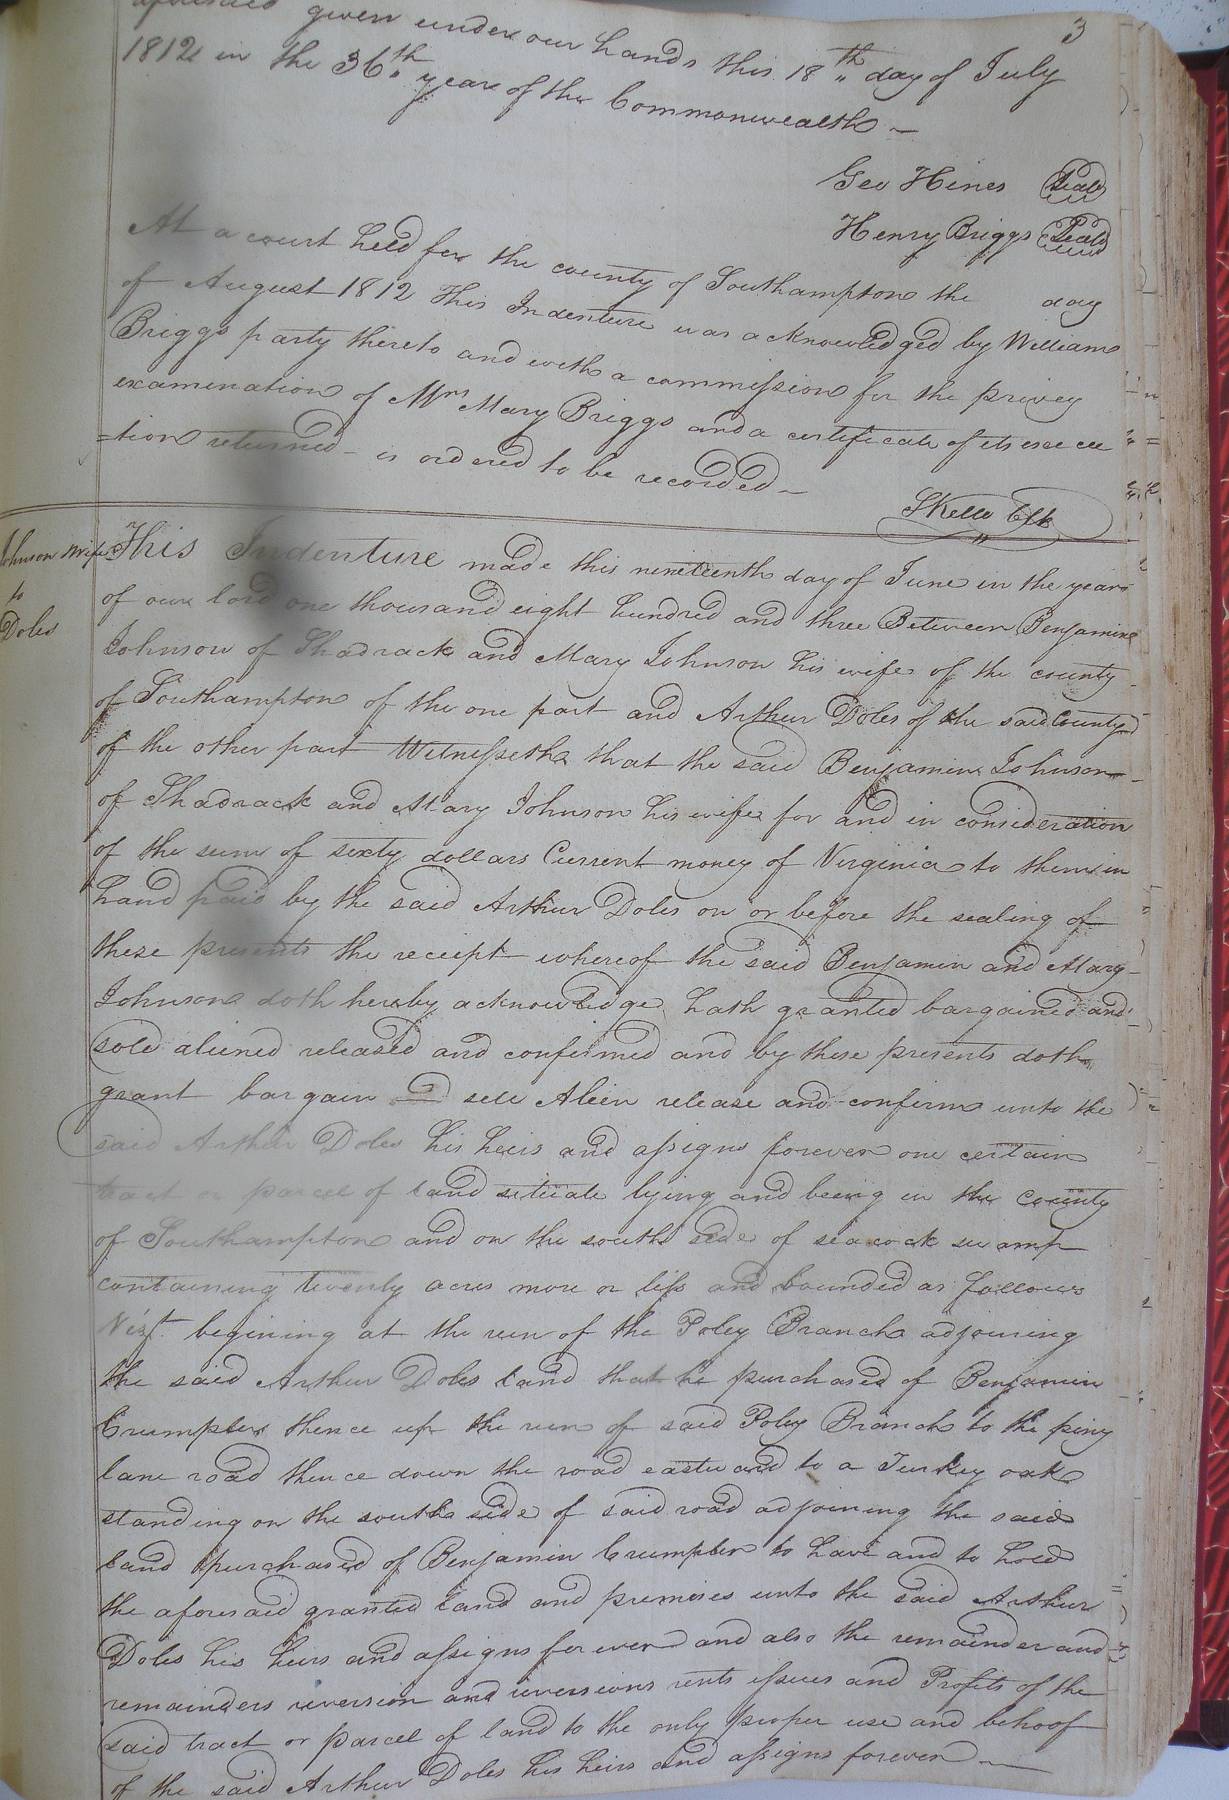 aforesaid given under our hands this 18th day of July
3
1812 in the 36th year of the Commonwealth –
Geo Hines Seal
Henry Briggs Seal
At a court held for the county of Southampton the day
of August 1812 This Indenture was acknowledged by William
Briggs party thereto and with a commission for the privey
examination of Mrs Mary Briggs and a certificate of its execu
=tion returned – is ordered to be recorded –
SKello Clk
Johnson & wife
to
Doles
This Indenture made this nineteenth day of June in the year
of our lord one thousand eight hundred and three Between Benjamin
Johnson of Shadrack and Mary Johnson his wife of the county
of Southampton of the one part and Arthur Doles of the said County
of the other part Witnesseth that the said Benjamin Johnson
of Shadrack and Mary Johnson his wife for and in consideration
of the sum of sixty dollars Current money of Virginia to them in
hand paid by the said Arthur Doles on or before the sealing of
these presents the receipt whereof the said Benjamin and Mary
Johnson doth hereby acknowledge hath granted bargained and
sold aliened released and confirmed and by these presents doth
grant bargain and sell Alien release and confirm unto the
said Arthur Doles his heirs and assigns forever one certain
tract or parcel of land situate lying and being in the county
of Southampton and on the south side of seacock swamp
containing twenty acres more or less and bounded as follows
Vizt. begining at the run of the Poley Branch adjoining
the said Arthur Doles land that he purchased of Benjamin
Crumpler thence up the run of said Poley Branch to the piny
lane road thence down the road eastward to a Turkey oak
standing on the south side of said road adjoining the said
land purchased of Benjamin Crumpler to have and to hold
the aforesaid granted land and premises unto the said Arthur
Doles his heirs and assigns for ever and also the remainder and
remainders reversion and reversions rents issues and Profits of the
said tract or parcel of land to the only proper use and behoof
of the said Arthur Doles his heirs and assigns forever –